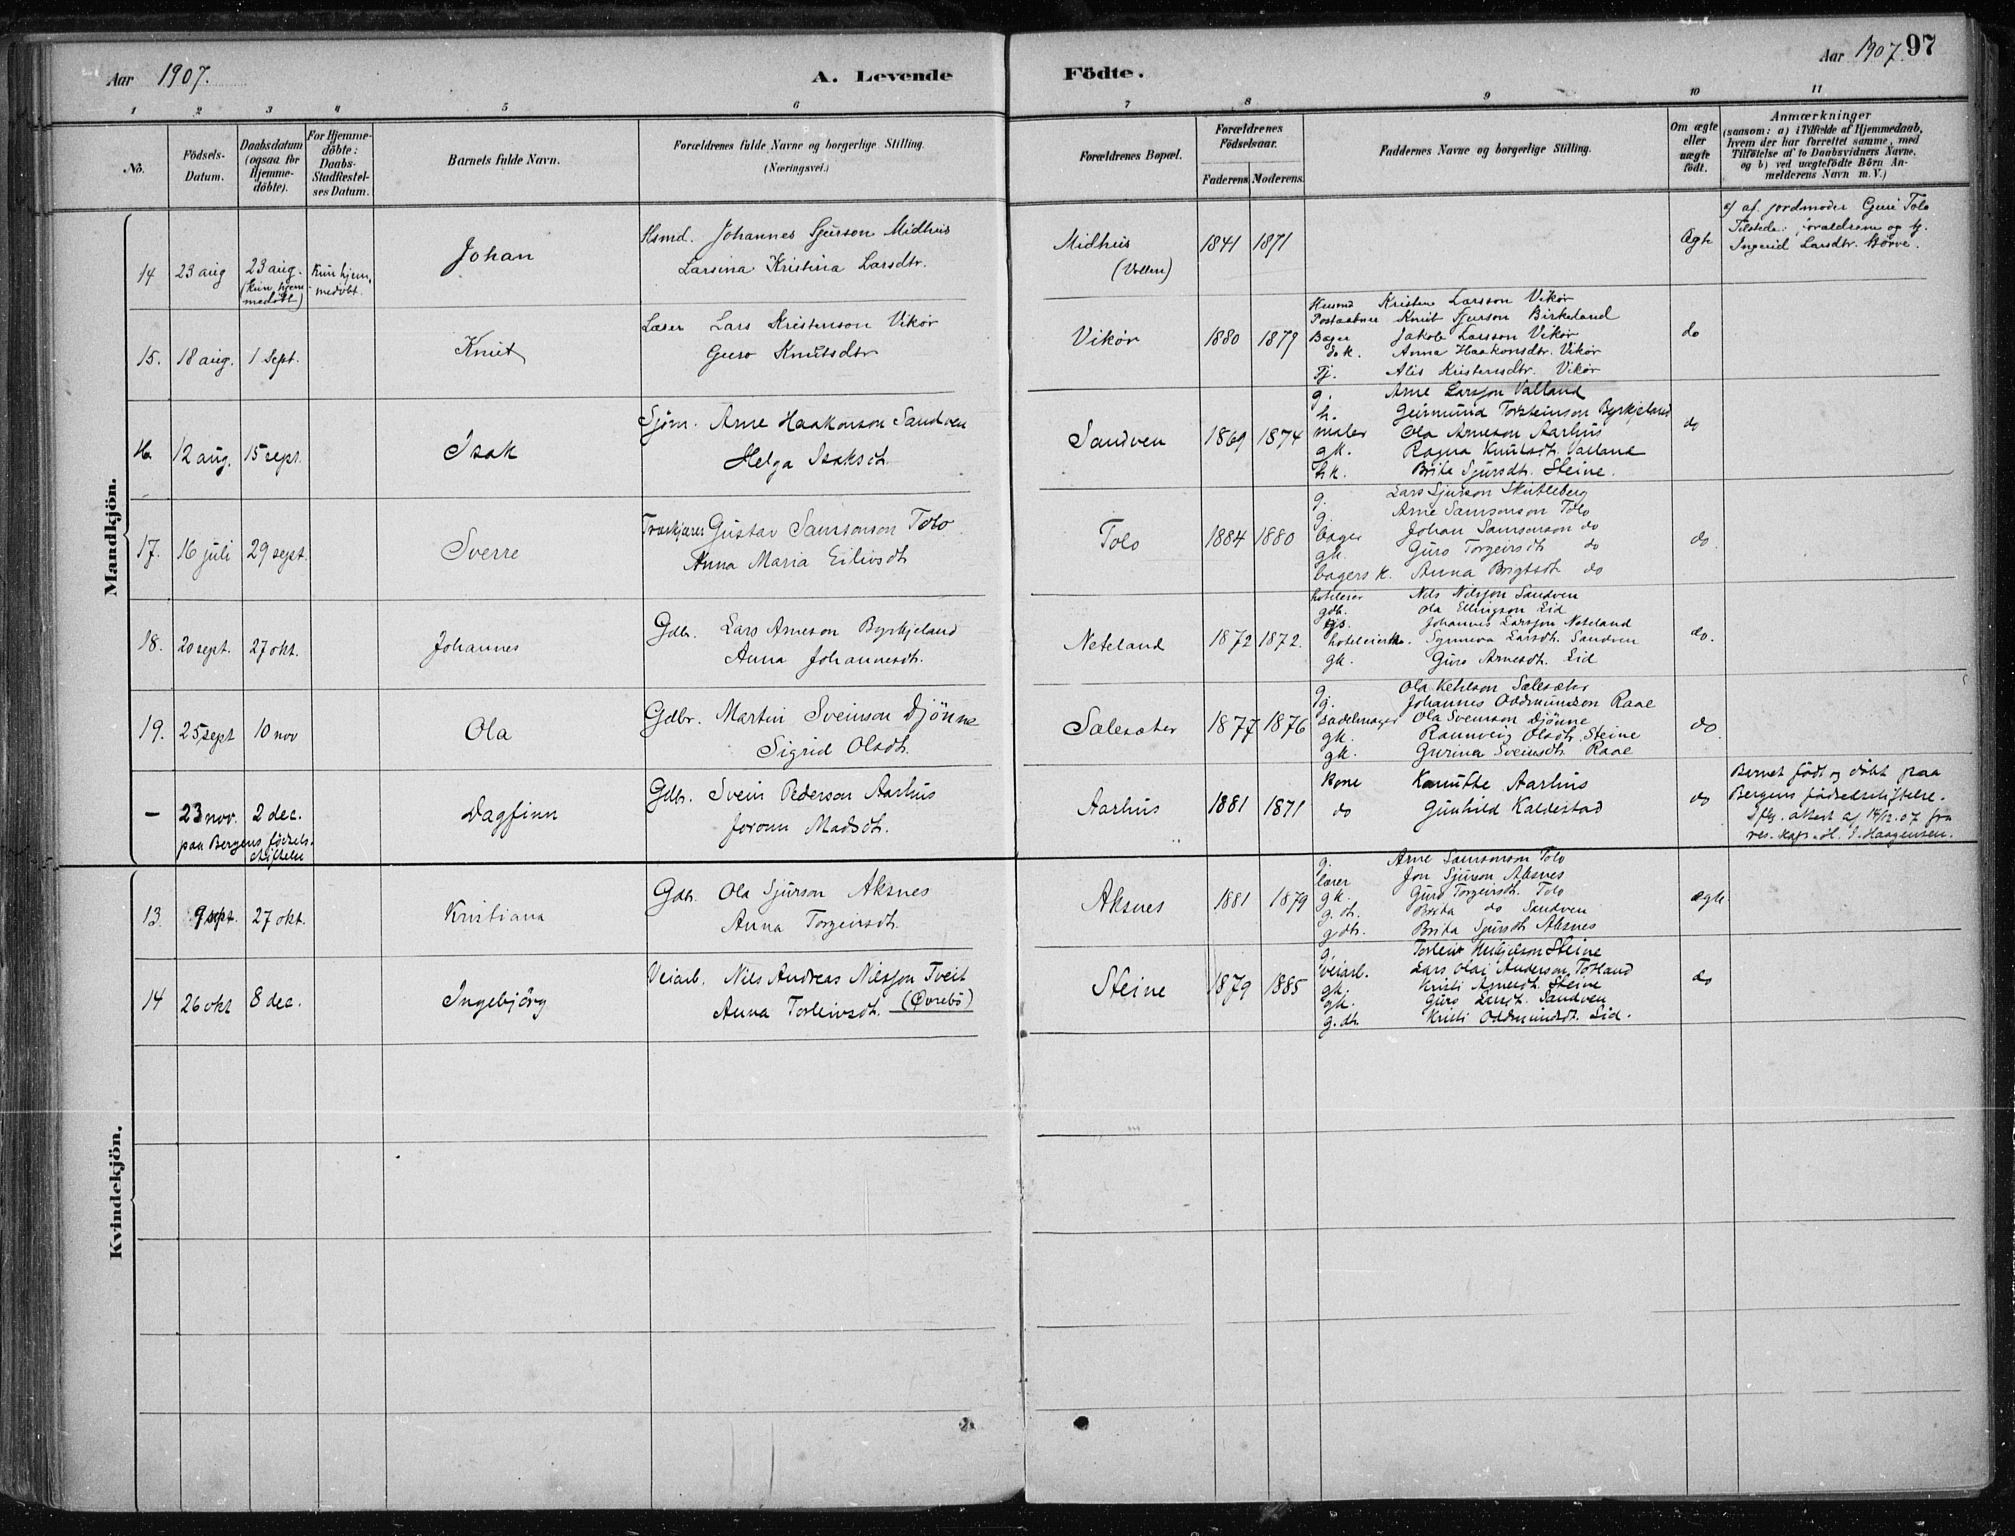 Aar 1907.
A. Levende
Födte.
Aar 1907. 97
1 2 3 4 5 6 7 8 9 10 11
No.
Födsels-Datum.
Daabsdatum (ogsaa for Hjemme-döbte).
For Hjemme-döbte: Daabs-Stadfæstelses Datum.
Barnets fulde Navn.
Forældrenes fulde Navne og borgerlige Stilling. (Næringsvei.)
Forældrenes Bopæl.
Forældrenes Födselsaar.
Faderens Moderens.
Faddernes Navne og borgerlige Stilling.
Om ægte eller uægte födt.
Anmærkninger
(saasom: a) i Tilfælde af Hjemmedaab,
hvem der har forrettet samme, med
Tilföielse af to Daabsvidners Navne,
og b) ved uægtefödte Börn An-
melderens Navn m. V.)
Mandkjön.
14 23 aug 23 aug. (kun hjemmedöbt) Kun hjemmedøbt. Johan
Hsmd. Johannes Sjurson Midhus
Larsina Kristina Larsdtr.
Midhus (Vollen) 1841 1871 Ægte
a) af jordmoder Guri Tolo
Tilstede: forældrene og tj.
Ingerid Larsdtr.
15. 18 aug. 1 Sept. Knut
Læser Lars Kristenson Vikør
Guro Knutsdtr
Vikør 1880 1879 do
Husmd Kristen Larsson Vikør
Postaabner Knut Sjurson Birkeland
Bager Jakob Larsson Vikør
do k. Anna Haakonsdtr. Vikør
Tj. Alis Kristensdtr. Vikør
16. 12 aug. 15 sept. Isak
Sjøm. Arne Haakonson Sandven
Helga Isaksdt.
Sandven 1869 1874 do
g. Arne Larsson Valland
h. Geirmund Torsteinson Byrkjeland
maler Ola Arneson Aarhus
gk. Ragna Knutsdt. Valland
hk. Brita Sjursdt. Steine.
17. 16 juli 29 sept. Sverre
Gustav Samsonson Tolo
Anna Maria Eilivsdt
Tolo 1884 1880 do.
g. Lars Sjurson Skutleberg
g. Arne Samsonson Tolo
bager Johan Samsonson do
gk. Guro Torgeirsdt do
bagers k. Anna Brigtsdt do
18. 20 sept. 27 okt. Johannes
Gdbr. Lars Arneson Byrkjeland
Anna Johannesdt.
Neteland 1872 1872. do.
hotelejer Nels Nilsson Sandven
gdb. Ola Ellingson Eid
gs. Johannes Larsson Neteland
Synneva Larsdt. Sandven
gk. Guro Arnesdt. Eid
19. 25 sept 10 nov Ola
Gdbr. Martin Sveinson Djönne
Sigrid Olsdt.
Sælesæter 1877 1876 do
g. Ola Ketilson Sælesæter
g. Johannes Oddmundson Raae
sadelmager Ola Sveinson Djönne
gk. Rannveig Olsdt. Steine
gk. Gurina Sveinsdt. Raae
– 23 nov. 2 dec. Dagfinn
paa Bergens födselsstiftelse
Gdbr. Svein Pederson Aarhus
Jorunn Madsdt.
Aarhus 1881 1871 do
kone Knutte Aarhus
do Gunhild Kaldestad
Barnet födt og döbt paa
Bergens födselsstiftelse.
Iflg. attest af 14/12.07 fra
res. kap. J. Haagensen.
Kvindekjön.
13. 9 sept. 27 okt. Kristiana
Gdb. Ola Sjurson Aksnes
Anna Torgeirsdt.
Aksnes 1881 1879 ægte
g. Arne Samsonson Tolo
lærer Jon Sjurson Aksnes
gk. Guro Torgeirsdt. Tolo
g. dt. Brita do Sandven
g. dtr. Brita Sjursdt. Aksnes
14 26 okt 8 dec. Ingebjörg
Veiarb. Nils Andreas Nilsson Tveit
Anna Torleivsdt. (Övrebö)
Steine 1879 1885 do
g. Torleiv Steine
veiarb. Lars Olai Anderson Totland
gk. Kristi Arnesdt. Steine
gk. Guro Larsdt. Sandven
g. dt. Kristi Oddmundsdt. Eid.